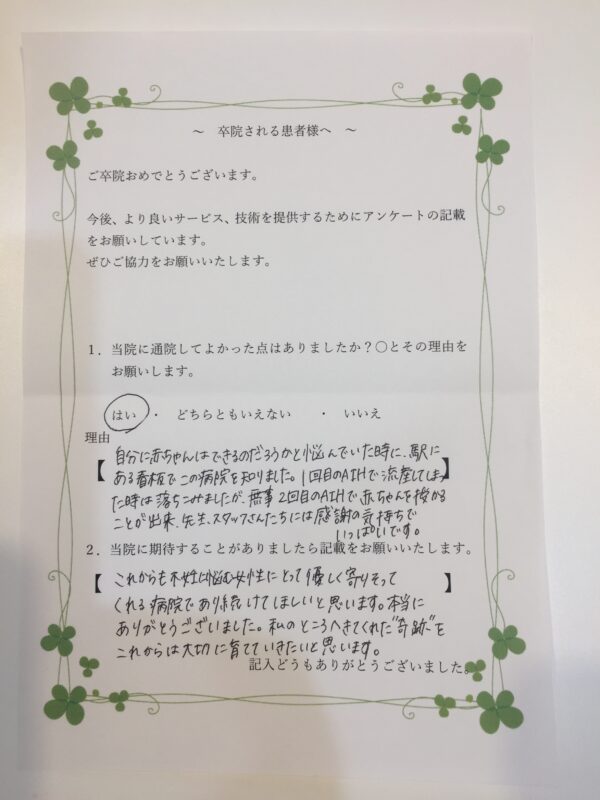 ～ 卒院される患者様へ ～
ご卒院おめでとうございます。
今後、より良いサービス、技術を提供するためにアンケートの記載
をお願いしています。
ぜひご協力をお願いいたします。
1．当院に通院してよかった点はありましたか？〇とその理由を
お願いします。
はい ・ どちらともいえない ・ いいえ
理由
【自分に赤ちゃんはできるのだろうかと悩んでいた時に、駅に
ある看板でこの病院を知りました。1回目のAIHで流産してしま】
った時は落ちこみましたが、無事2回目のAIHで赤ちゃんを授かる
ことが出来、先生、スタッフさんたちには感謝の気持ちで
いっぱいです。
2．当院に期待することがありましたら記載をお願いいたします。
【これからも不妊に悩む女性にとって優しく寄りそって】
くれる病院であり続けてほしいと思います。本当に
ありがとうございました。私のところへきてくれた"奇跡"を
これからは大切に育てていきたいと思います。
記入どうもありがとうございました。